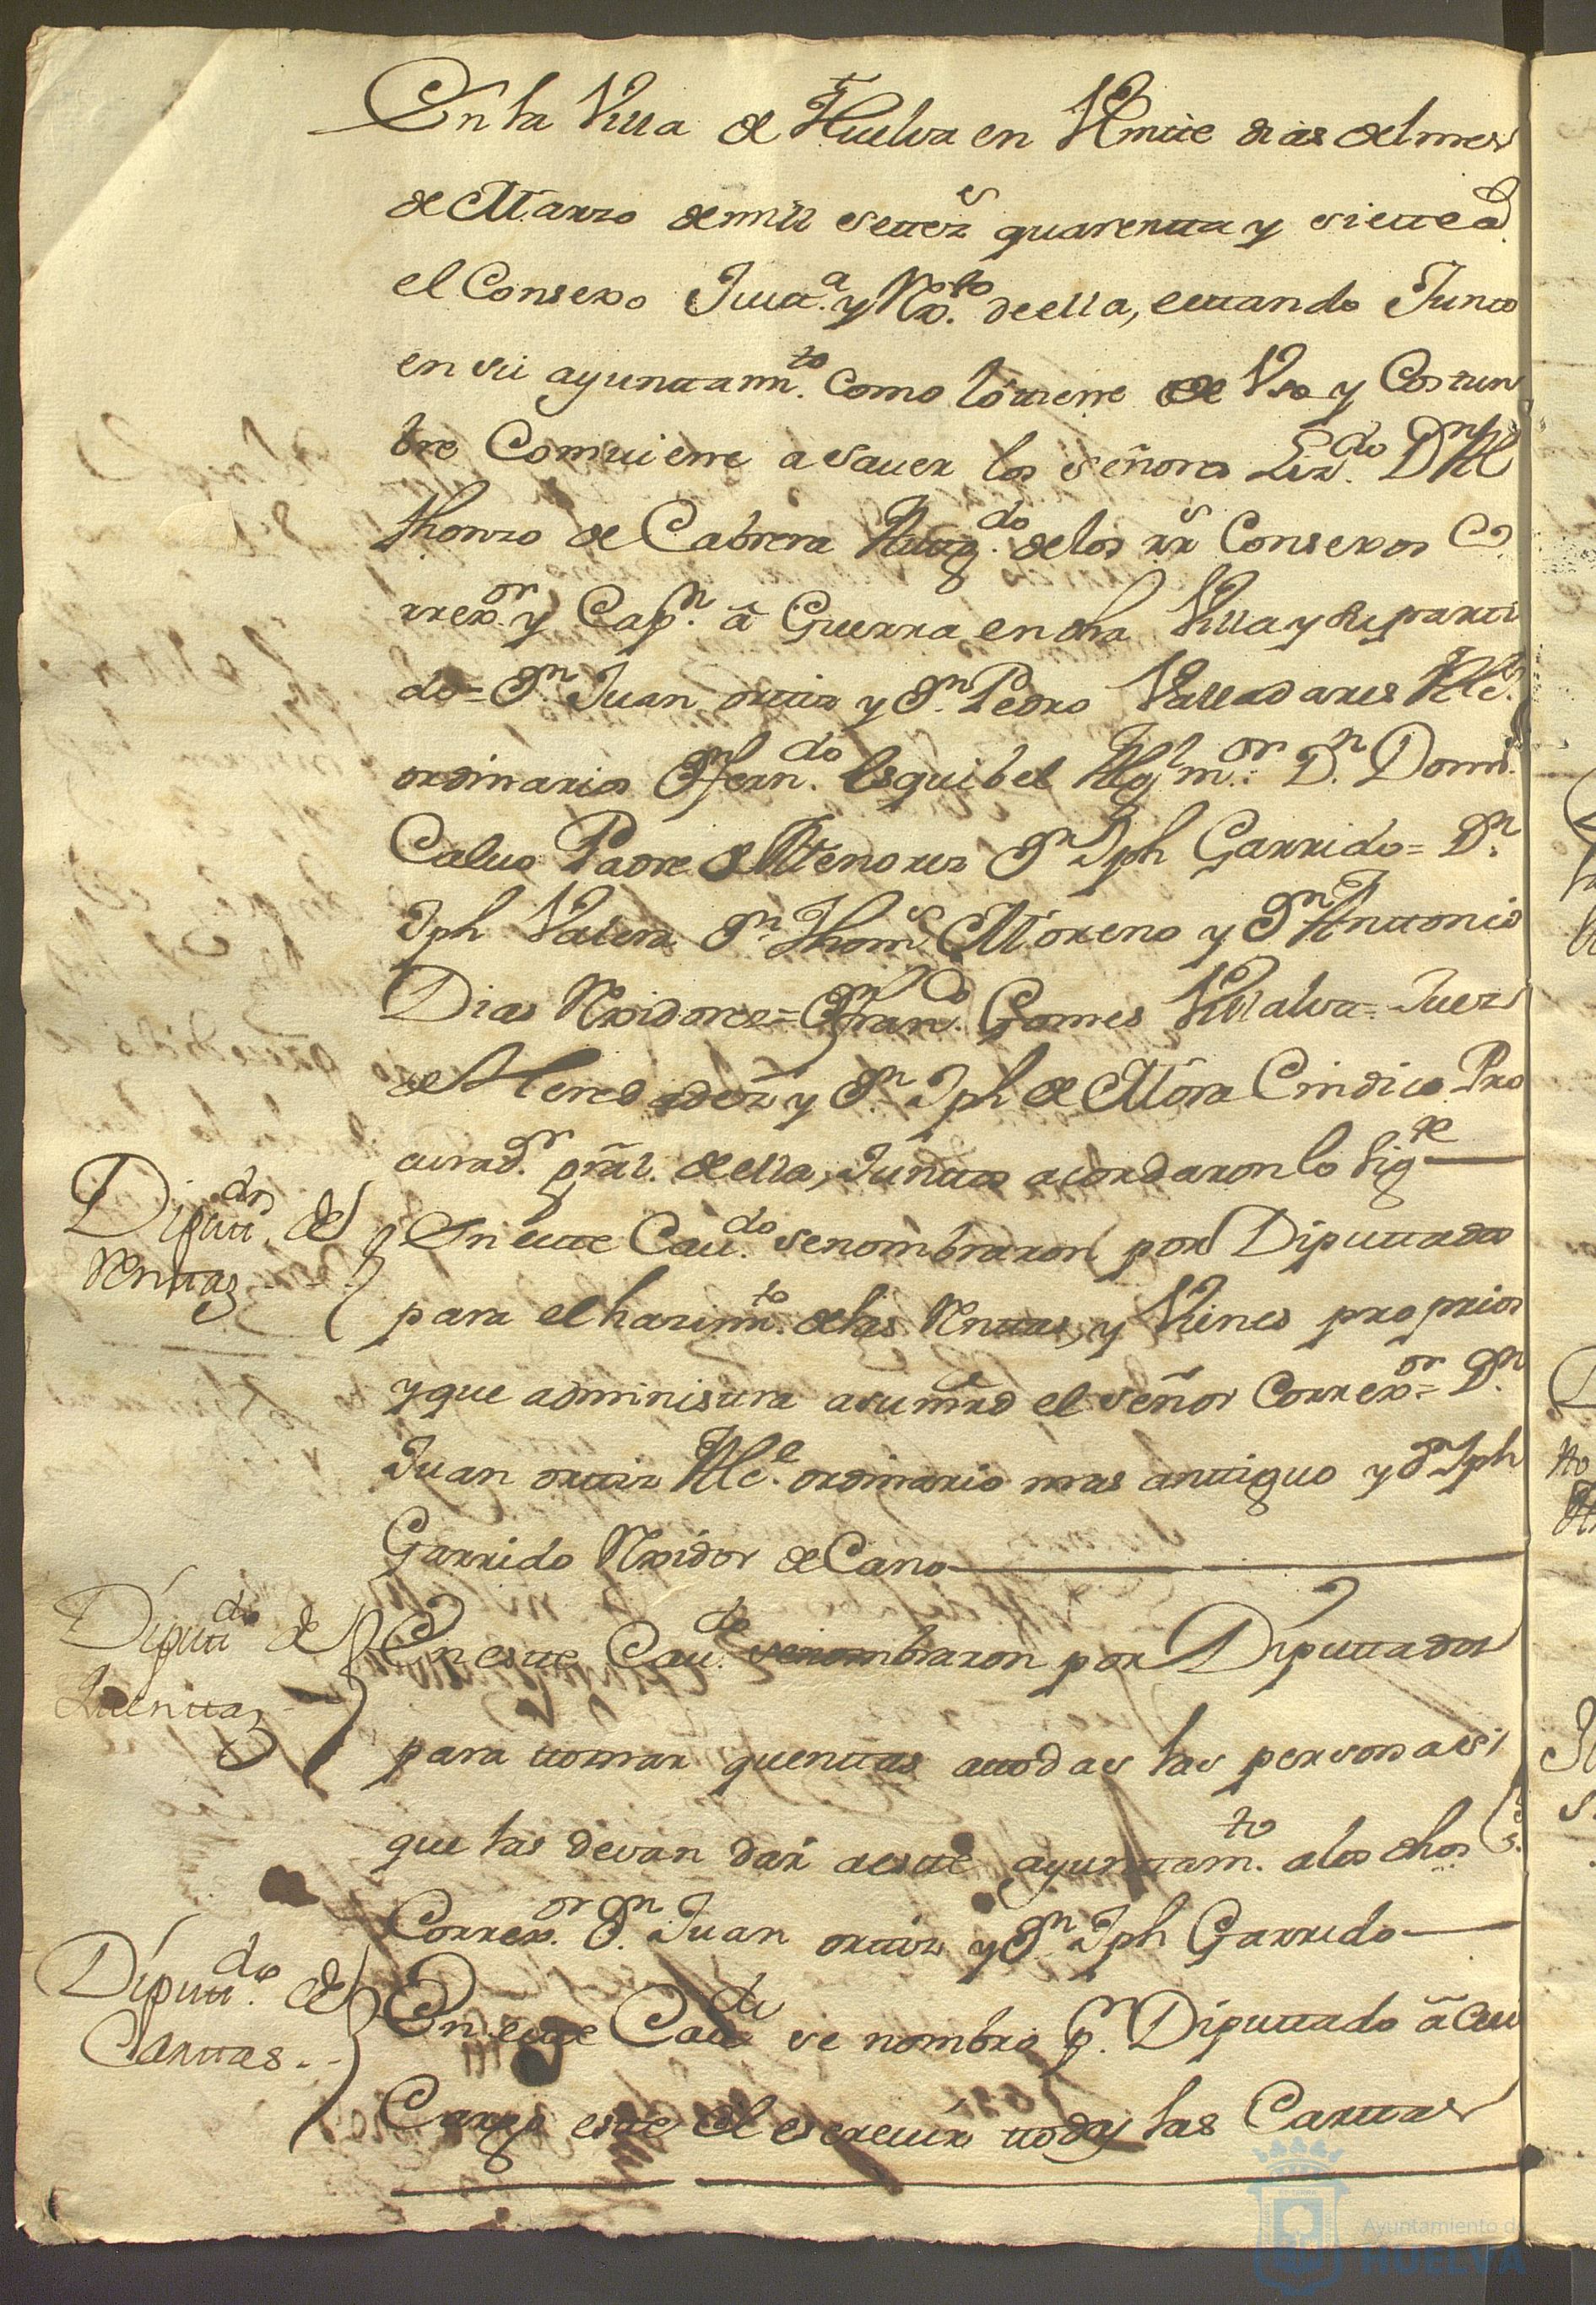 En la Villa de Huelva en Veinte dias del mes
de Marzo de mill settez.s quarentta y siette a.d
el Consexo Justt.a y Rex.to de ella, esttando Juntto
en su ayunttam.to como lo tiene de Vso y Costum
bre Comviene a saver los señores Liz.do D.n Al
fhonzo de Cabrera Avog.do de los r.s Consexos Co
rrex.or y Cap.n â Guerra en dha Villa y su partti
do = D.n Juan orttiz y D.n Pedro Valladares Alc.s
ordinarios D.n fern.do Esquibel Alg.l m.or D.n Dom.o
Calvo Padre de Menores D.n Jph Garrido = D.n
Jph Valera D.n Thom.s Moreno y D.n Anttonio
Dias Rexidores = D.n fran.co Gomes Villalva = Juez
de Heredadez y D.n Jph de Mora Cindico Pro
curad.or gral. de ella, Junttos acordaron lo sig.te
Diputt.dos de
Renttas
En estte Cav.do se nombraron por Diputtados
para el hazim.to de las Renttas, y Vienes proprios
y que adminisstra a su mrd el señor Correx.or = D.n
Juan orttiz Alc.e ordinario mas anttiguo y D.n Jph
Garrido Rexidor deCano
Diputt.dos de
Quenttas
En estte Cav.do se nombraron por Diputtados
para ttomar quenttas a ttodas las personas
que las devan dar a estte ayunttam.to a los dhos S.res
Correx.or D.n Juan orttiz y D.n Jph Garrido
Diputt.dos de
Carttas
En estte Cav.do se nombro p.r Diputtado â cuio
Cargo estte el escrevir ttodas las Carttas
Ayuntamiento de
HUELVA